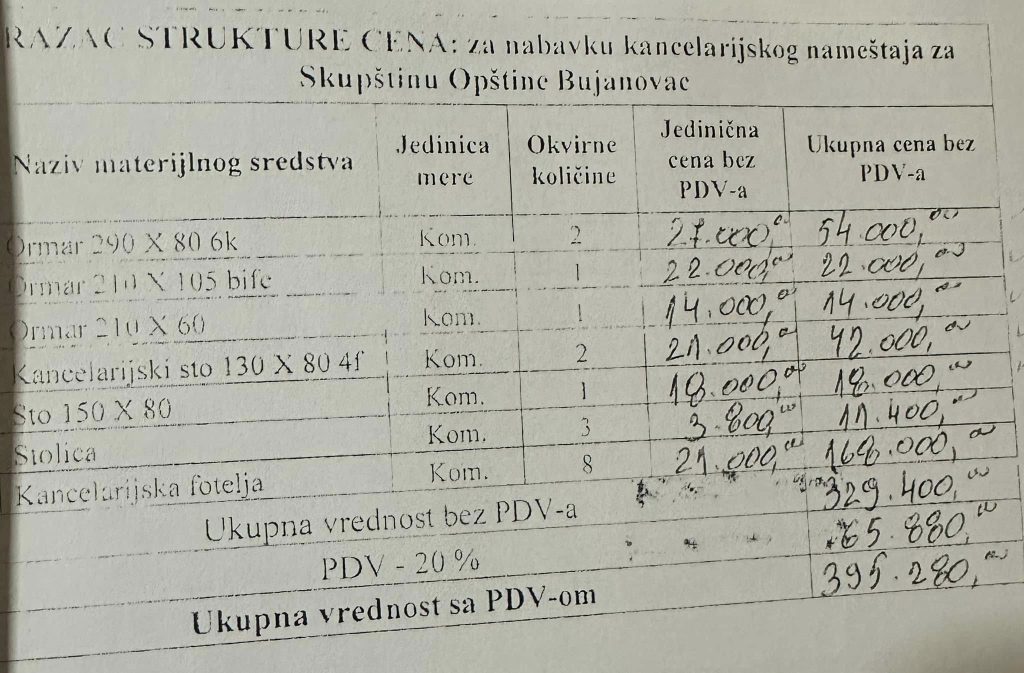 RAZAC STRUKTURE CENA: za nabavku kancelarijskog nameštaja za
Skupštinu Opštine Bujanovac
Naziv materijlnog sredstva Jedinica mere Okvirne količine Jedinična cena bez PDV-a Ukupna cena bez PDV-a
Ormar 290 X 80 6k Kom. 2 27.000,00 54.000,00
Ormar 210 X 105 bife Kom. 1 22.000,00 22.000,00
Ormar 210 X 60 Kom. 1 14.000,00 14.000,00
Kancelarijski sto 130 X 80 4f Kom. 2 21.000,00 42.000,00
Sto 150 X 80 Kom. 1 18.000,00 18.000,00
Stolica Kom. 3 3.800,00 11.400,00
Kancelarijska fotelja Kom. 8 21.000,00 168.000,00
Ukupna vrednost bez PDV-a 329.400,00
PDV - 20 % 65.880,00
Ukupna vrednost sa PDV-om 395.280,00